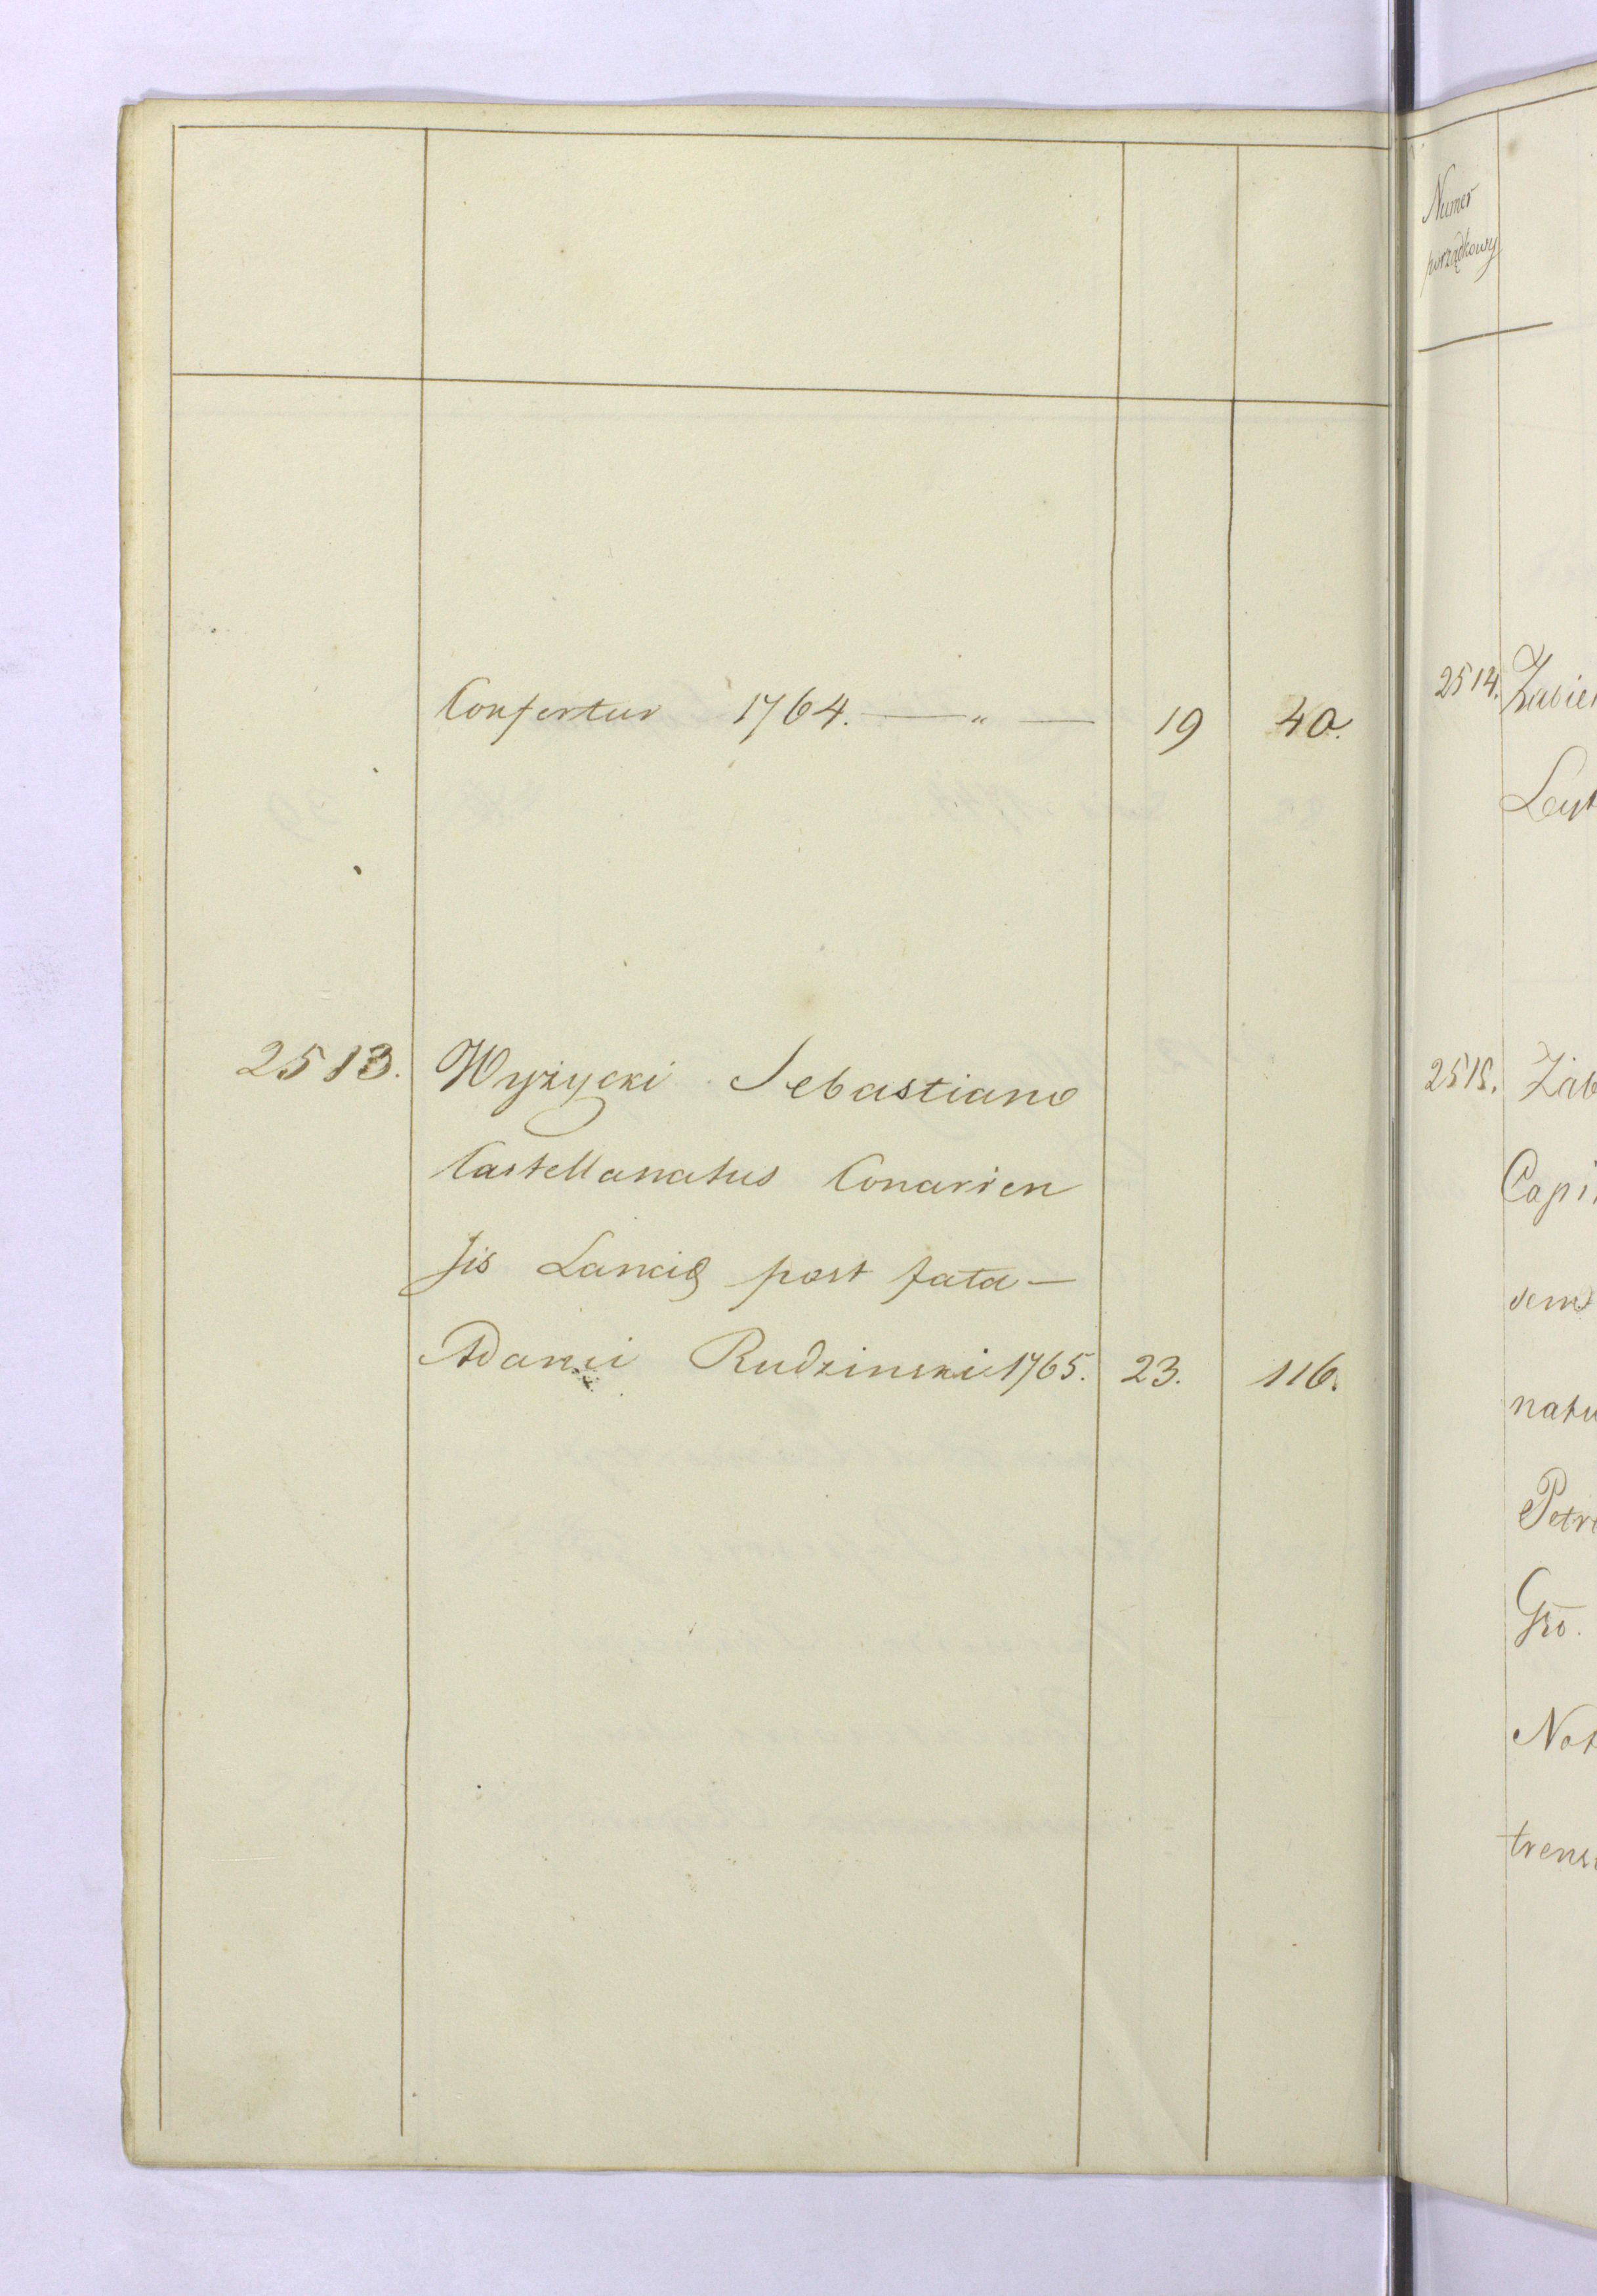 Confertur 1764. — " — 19 40.
2513. Wyżycki Sebastiano
Castellanatus Conarien
sis post fata —
Adami Rudzinski 1765. 23. 116.
Numer
porządkowy
2514.
2515. Żab
Capi
natu
Petr
Gro.
Not